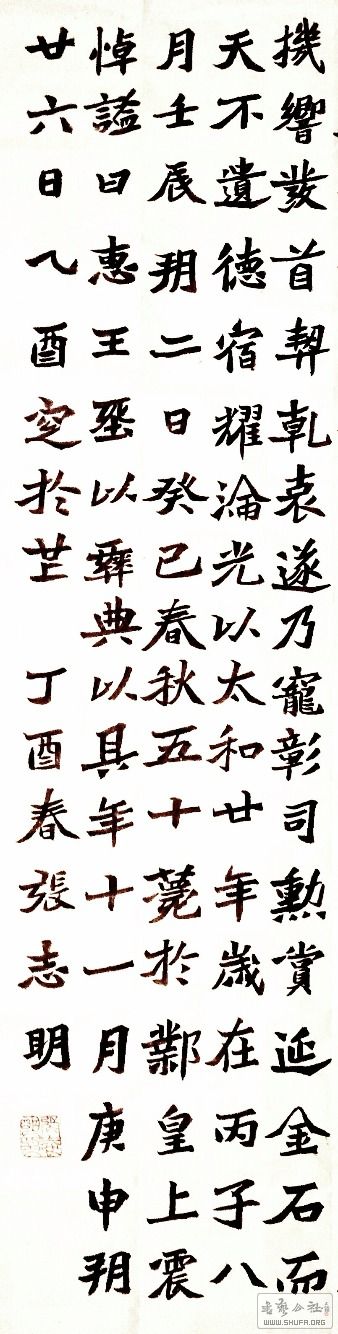 機響發首契乾衷遂乃寵彰司勳賞延金石而
天不遺德宿耀淪光以太和廿年歲在丙子八
月壬辰朔二日癸巳春秋五十薨於鄴皇上震
悼謚曰惠王葬以彝典以其年十一月庚申朔
廿六日乙酉窆於芒 丁酉春張志明
WWW.SHUFA.ORG